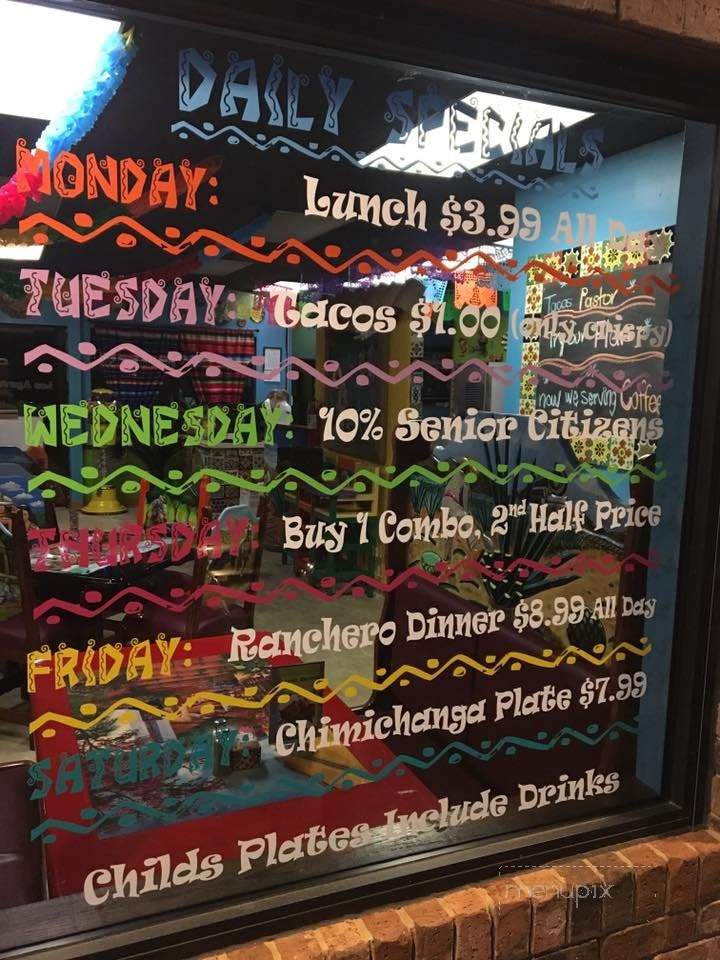 DAILY SPECIALS
MONDAY: Lunch $3.99 All Day
TUESDAY: Tacos $1.00 (only crispy)
WEDNESDAY: 10% Senior Citizens
THURSDAY: Buy 1 Combo, 2nd Half Price
FRIDAY: Ranchero Dinner $8.99 All Day
SATURDAY: Chimichanga Plate $7.99
Childs Plates Include Drinks
Tacos Pastor
now we serving Coffee
menupix